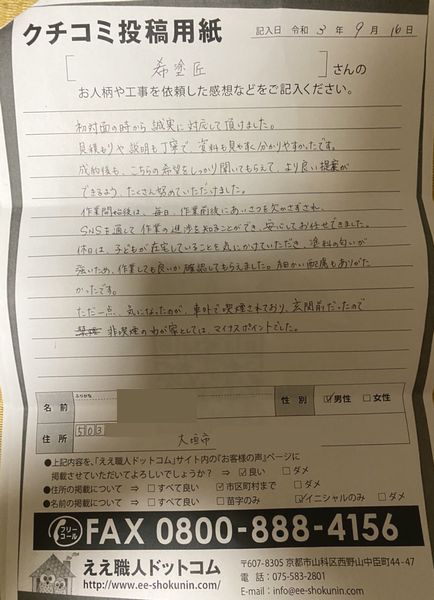 クチコミ投稿用紙
記入日 令和 3年 9月 16日
[ 希塗匠 ] さんの
お人柄や工事を依頼した感想などをご記入ください。
初対面の時から誠実に対応して頂けました。
見積もりや説明も丁寧で、資料も見やすく分かりやすかったです。
成約後も、こちらの希望をしっかり聞いてもらえて、より良い提案が
できるよう、たくさん努めていただけました。
作業開始後は、毎日、作業前後にあいさつを欠かさずされ、
SNSを通して作業の進歩を知ることができ、安心してお任せできました。
休日は、子どもが在宅していることを気にかけていただき、塗料の匂いが
強いため、作業しても良いか確認してもらえました。細かい配慮もありがた
かったです。
ただ一点、気になったのが、車外で喫煙されており、玄関前だったので
非喫煙のわが家としては、マイナスポイントでした。
ふりがな
名前
性別 ☑男性 □女性
住所
503
大垣市
●上記内容を、「ええ職人ドットコム」サイト内の『お客様の声』ページに
掲載させていただいてよろしいでしょうか？ ⇒ ☑良い □ダメ
●住所の掲載について ⇒ □すべて良い ☑市区町村まで □ダメ
●名前の掲載について ⇒ □すべて良い □苗字のみ ☑イニシャルのみ □ダメ
フリーコール FAX 0800-888-4156
ええ職人ドットコム
http://www.ee-shokunin.com/
〒607-8305 京都市山科区西野山中臣町44-47
電話：075-583-2801
E-mail：info@ee-shokunin.com